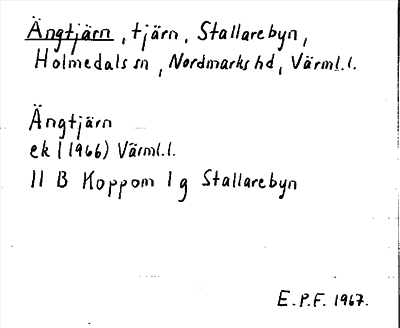 Ängtjärn, tjärn, Stallarebyn,
Holmedals sn, Nordmarks hd, Värml.l.
Ängtjärn
ek l (1966) Värml.l.
11 B Koppom 1 g Stallarebyn
E.P.F. 1967.